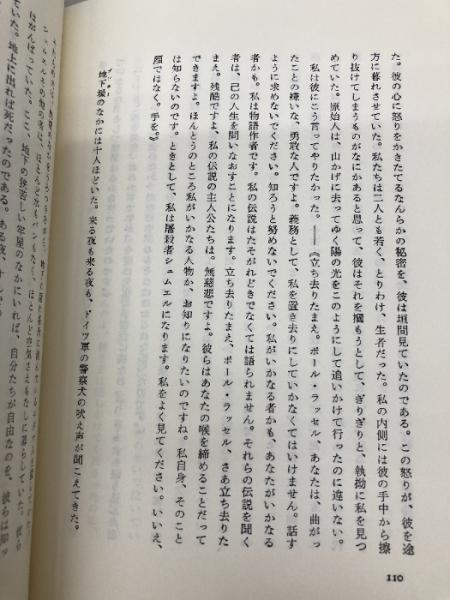 た。彼の心に怒りをかきたてるなんらかの秘密を、彼は垣間見ていたのである。この怒りが、彼を途
方に暮れさせていた。私たちは二人とも若く、とりわけ、生者だった。私の内側には彼の手中から擦
り抜けてしまうものがなにかあると思って、彼はそれを摑もうとして、ぎりぎりと、執拗に私を見つ
めていた。原始人は、山かげに去ってゆく陽の光をこのようにして追いかけて行ったのに違いない。
私は彼にこう言ってやりたかった。――《立ち去りたまえ。ポール・ラッセル、あなたは、曲がっ
たことの嫌いな、勇敢な人ですよ。義務として、私を置き去りにしていかなくてはいけません。話す
ように求めないでください。知ろうと努めないでください。私がいかなる者かも、あなたがいかなる
者かも。私は物語作者です。私の伝説はたそがれどきでなくては語られません。それらの伝説を聞く
者は、己の人生を問いなおすことになります。立ち去りたまえ、ポール・ラッセル、さあ立ち去りた
まえ。残酷ですよ、私の伝説の主人公たちは。無慈悲ですよ。彼らはあなたの喉を締めることだって
できますよ。ほんとうのところ私がいかなる人物か、お知りになりたいのですね。私自身、そのこと
は知らないのです。ときとして、私は屠殺者シュムエルになります。私をよく見てください。いいえ、
顔ではなく。手を》
地下壕のなかには十人ほどいた。来る夜も来る夜も、ドイツ軍の警察犬の吠え声が聞こえてきた。
はがんばっていた。ここ、地下の狭苦しい牢屋のなかにいれば、自分たちが自由なのを、彼らは知っ
ていた。地上に出れば死だったのである。ある夜、
110